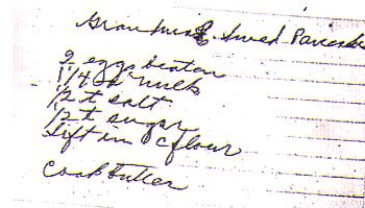 Grandma's Swed Pancakes
2 eggs beaten
1 1/4 c milk
1/2 t salt
1/2 t sugar
Sift in c flour
Cook butter